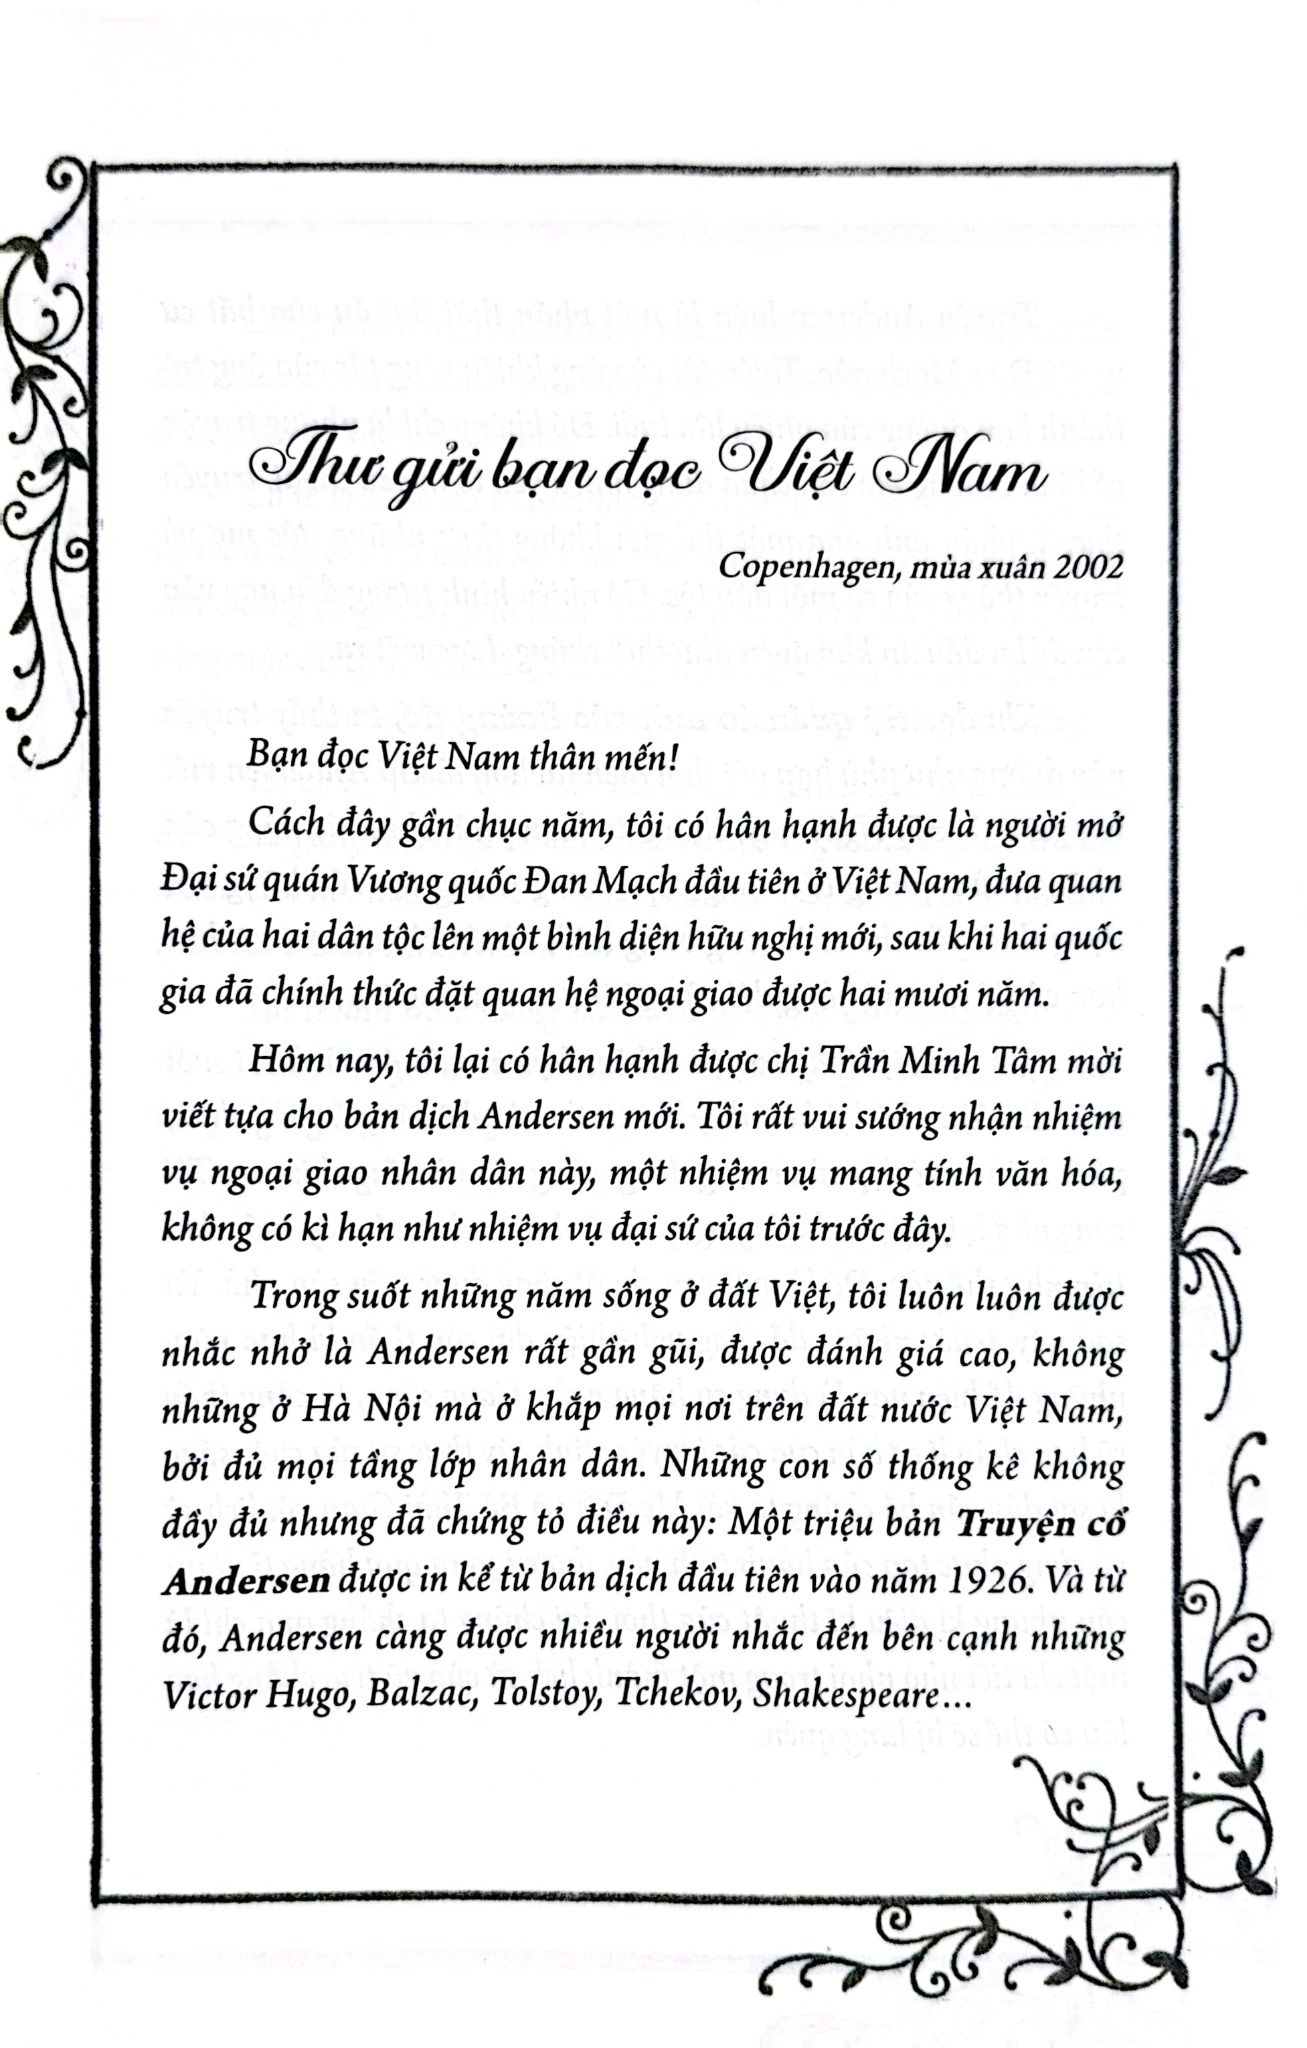 Thư gửi bạn đọc Việt Nam
Copenhagen, mùa xuân 2002
Bạn đọc Việt Nam thân mến!
Cách đây gần chục năm, tôi có hân hạnh được là người mở
Đại sứ quán Vương quốc Đan Mạch đầu tiên ở Việt Nam, đưa quan
hệ của hai dân tộc lên một bình diện hữu nghị mới, sau khi hai quốc
gia đã chính thức đặt quan hệ ngoại giao được hai mươi năm.
Hôm nay, tôi lại có hân hạnh được chị Trần Minh Tâm mời
viết tựa cho bản dịch Andersen mới. Tôi rất vui sướng nhận nhiệm
vụ ngoại giao nhân dân này, một nhiệm vụ mang tính văn hóa,
không có kì hạn như nhiệm vụ đại sứ của tôi trước đây.
Trong suốt những năm sống ở đất Việt, tôi luôn luôn được
nhắc nhở là Andersen rất gần gũi, được đánh giá cao, không
những ở Hà Nội mà ở khắp mọi nơi trên đất nước Việt Nam,
bởi đủ mọi tầng lớp nhân dân. Những con số thống kê không
đầy đủ nhưng đã chứng tỏ điều này: Một triệu bản Truyện cổ
Andersen được in kể từ bản dịch đầu tiên vào năm 1926. Và từ
đó, Andersen càng được nhiều người nhắc đến bên cạnh những
Victor Hugo, Balzac, Tolstoy, Tchekov, Shakespeare...